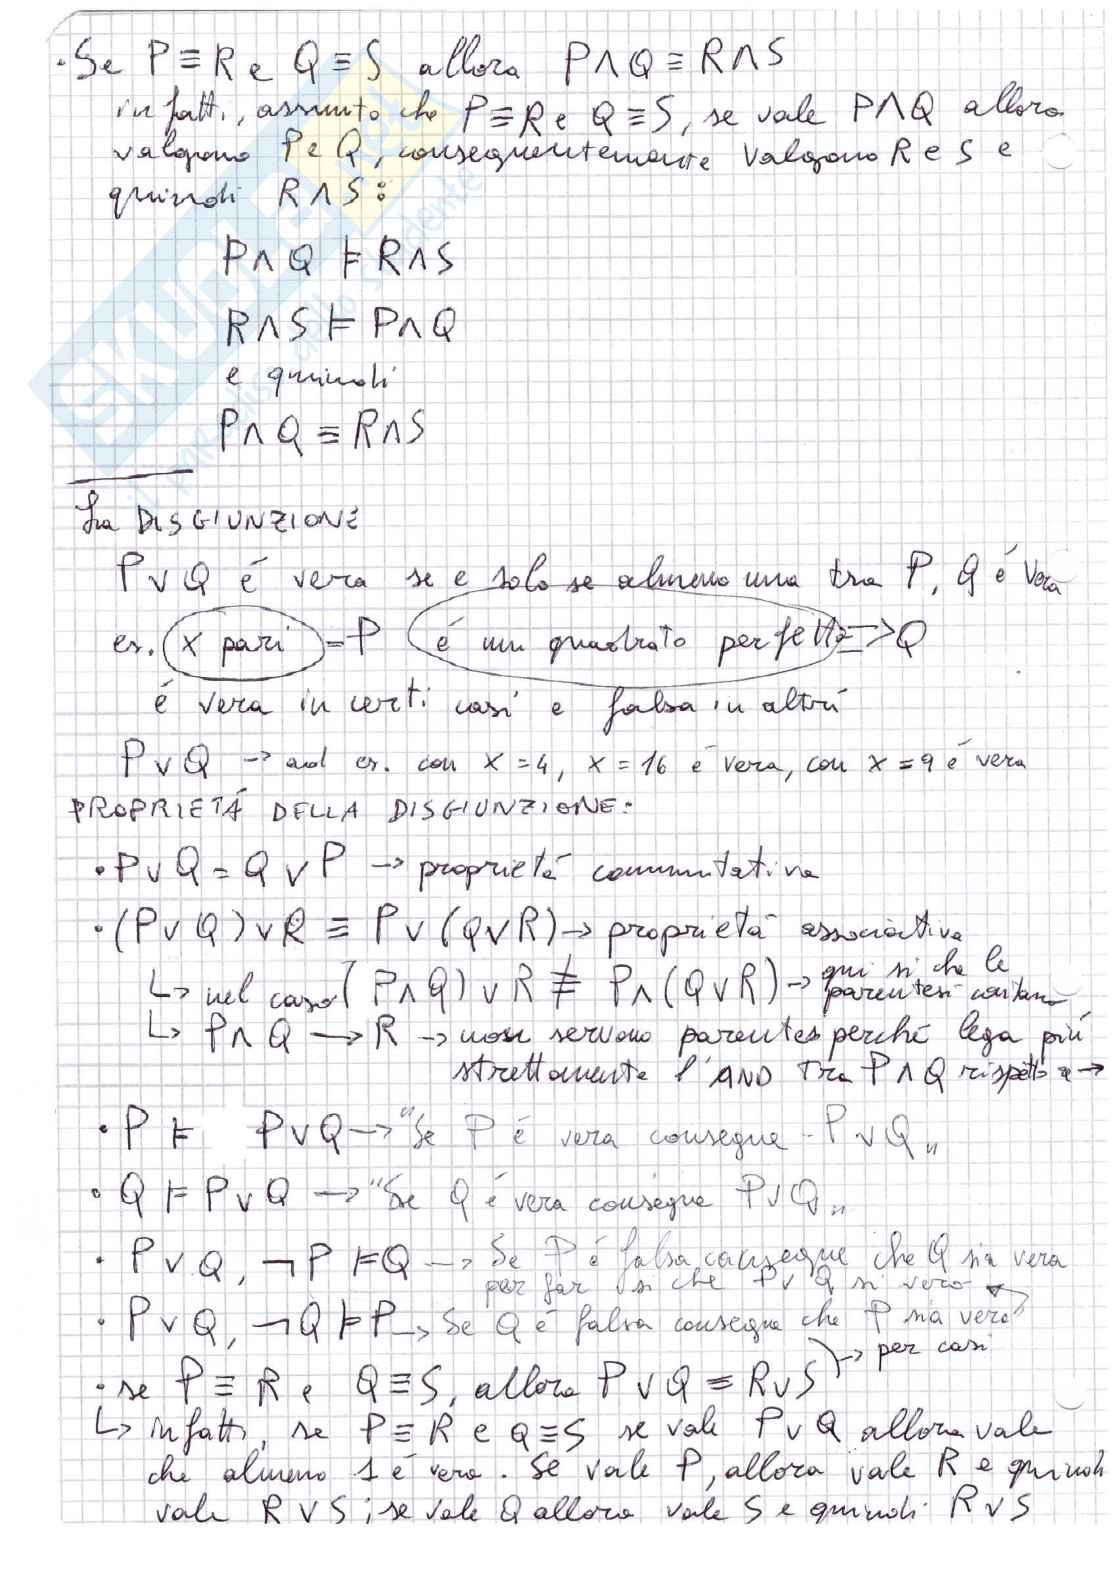 • Se P ≡ R e Q ≡ S allora P ∧ Q ≡ R ∧ S
infatti, assunto che P ≡ R e Q ≡ S, se vale P ∧ Q allora
valgono P e Q, conseguentemente valgono R e S e
quindi R ∧ S:
P ∧ Q ⊨ R ∧ S
R ∧ S ⊨ P ∧ Q
e quindi
P ∧ Q ≡ R ∧ S
La DISGIUNZIONE
P ∨ Q é vera se e solo se almeno una tra P, Q é vera
es. x pari = P é un quadrato perfetto => Q
é vera in certi casi e falsa in altri
P ∨ Q → ad es. con x = 4, x = 16 é vera, con x = 9 é vera
PROPRIETÁ DELLA DISGIUNZIONE:
• P ∨ Q = Q ∨ P → proprietá commutativa
• (P ∨ Q) ∨ R ≡ P ∨ (Q ∨ R) → proprietá associativa
↳ nel caso (P ∧ Q) ∨ R ≢ P ∧ (Q ∨ R) → qui si che le
parentesi contano
↳ P ∧ Q → R → non servono parentes perché lega piú
strettamente l'AND tra P ∧ Q rispetto a →
• P ⊨ P ∨ Q → "Se P é vera consegue P ∨ Q"
• Q ⊨ P ∨ Q → "Se Q é vera consegue P ∨ Q"
• P ∨ Q, ¬P ⊨ Q → Se P é falsa consegue che Q sia vera
per far si che P ∨ Q si vero
• P ∨ Q, ¬Q ⊨ P → Se Q é falsa consegue che P sia vero
→ per casi
• se P ≡ R e Q ≡ S, allora P ∨ Q ≡ R ∨ S
↳ infatti, se P ≡ R e Q ≡ S se vale P ∨ Q allora vale
che almeno 1 é vera. Se vale P, allora vale R e quindi
vale R ∨ S; se vale Q allora vale S e quindi R ∨ S
SKUOLA.net
il paradiso dello studente